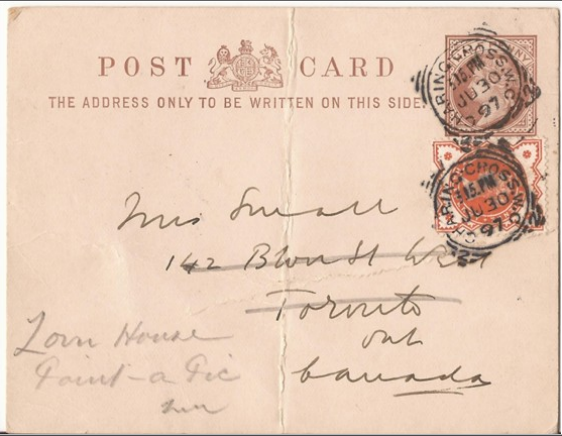 POST CARD
THE ADDRESS ONLY TO BE WRITTEN ON THIS SIDE.
CHARING·CROSS·W.C.
5.15.PM
JU 30
97
CHARING·CROSS·W.C.
5.15.PM
JU 30
97
Mrs Small
142 Bloor St West
Toronto
Ont
Canada
House
Point-a Pic